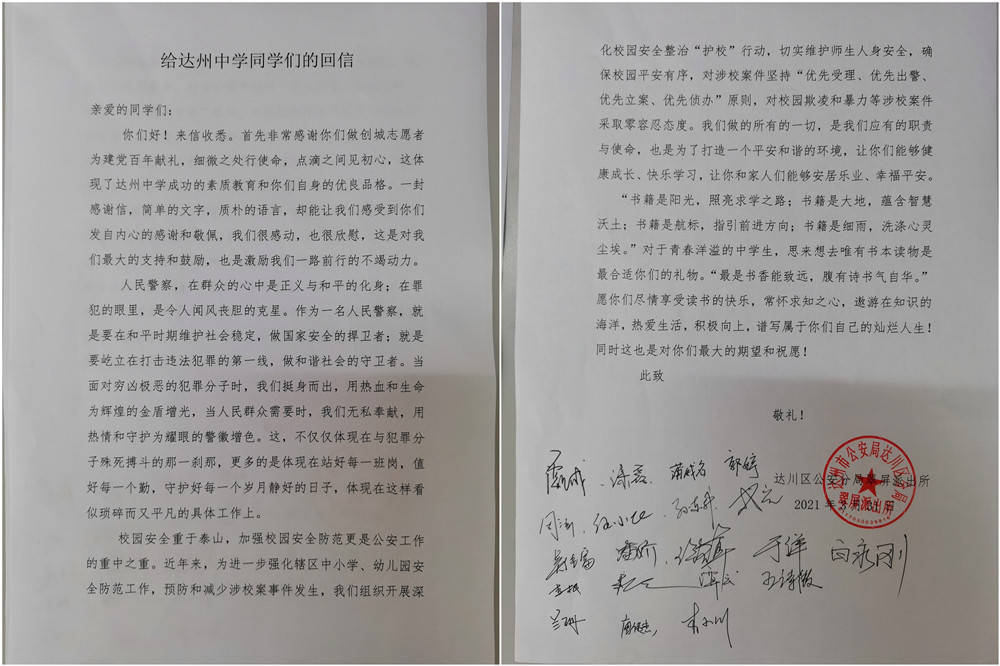 给达州中学同学们的回信
亲爱的同学们：
你们好！来信收悉。首先非常感谢你们做创城志愿者
为建党百年献礼，细微之处行使命，点滴之间见初心，这体
现了达州中学成功的素质教育和你们自身的优良品格。一封
感谢信，简单的文字，质朴的语言，却能让我们感受到你们
发自内心的感谢和敬佩，我们很感动，也很欣慰，这是对我
们最大的支持和鼓励，也是激励我们一路前行的不竭动力。
人民警察，在群众的心中是正义与和平的化身；在罪
犯的眼里，是令人闻风丧胆的克星。作为一名人民警察，就
是要在和平时期维护社会稳定，做国家安全的捍卫者；就是
要屹立在打击违法犯罪的第一线，做和谐社会的守卫者。当
面对穷凶极恶的犯罪分子时，我们挺身而出，用热血和生命
为辉煌的金盾增光，当人民群众需要时，我们无私奉献，用
热情和守护为耀眼的警徽增色。这，不仅仅体现在与犯罪分
子殊死搏斗的那一刹那，更多的是体现在站好每一班岗，值
好每一个勤，守护好每一个岁月静好的日子，体现在这样看
似琐碎而又平凡的具体工作上。
校园安全重于泰山，加强校园安全防范更是公安工作
的重中之重。近年来，为进一步强化辖区中小学、幼儿园安
全防范工作，预防和减少涉校案事件发生，我们组织开展深
化校园安全整治“护校”行动，切实维护师生人身安全，确
保校园平安有序，对涉校案件坚持“优先受理、优先出警、
优先立案、优先侦办”原则，对校园欺凌和暴力等涉校案件
采取零容忍态度。我们做的所有的一切，是我们应有的职责
与使命，也是为了打造一个平安和谐的环境，让你们能够健
康成长、快乐学习，让你和家人们能够安居乐业、幸福平安。
“书籍是阳光，照亮求学之路；书籍是大地，蕴含智慧
沃土；书籍是航标，指引前进方向；书籍是细雨，洗涤心灵
尘埃。”对于青春洋溢的中学生，思来想去唯有书本读物是
最合适你们的礼物。“最是书香能致远，腹有诗书气自华。”
愿你们尽情享受读书的快乐，常怀求知之心，遨游在知识的
海洋，热爱生活，积极向上，谱写属于你们自己的灿烂人生！
同时这也是对你们最大的期望和祝愿！
此致
敬礼！
达川区公安分局翠屏派出所
达州市公安局达川区分局
翠屏派出所
2021年
于洋 向永刚